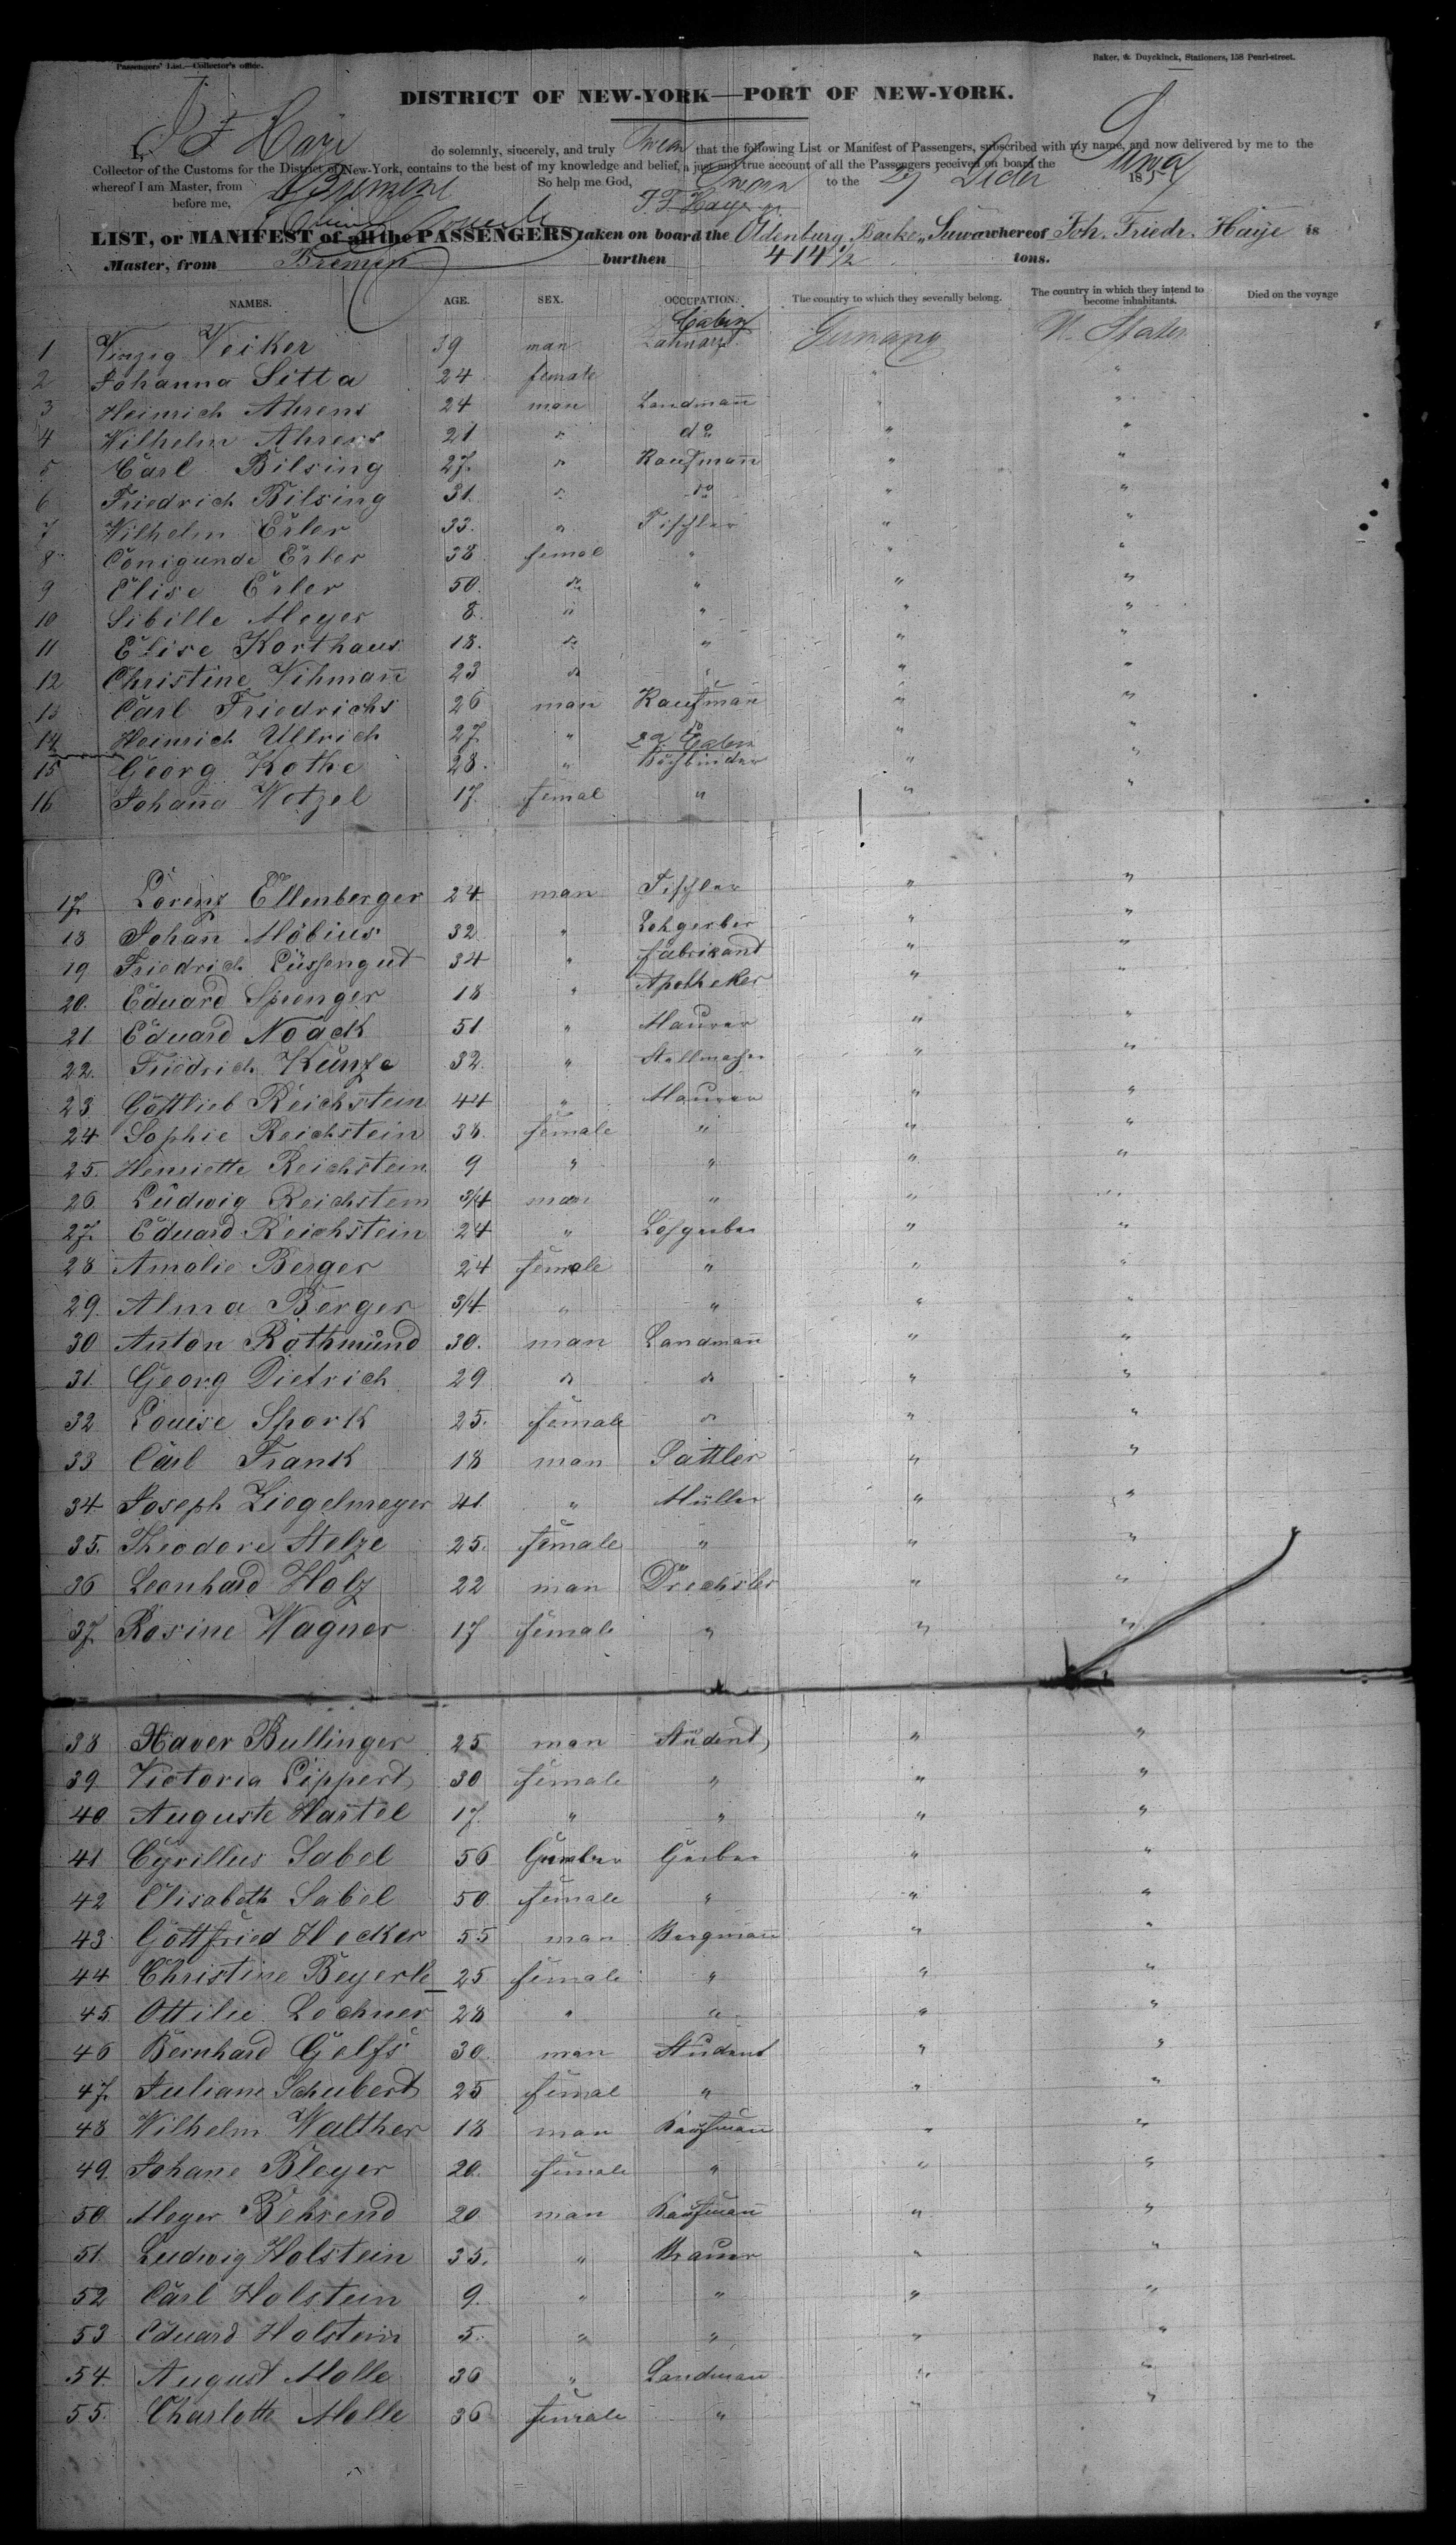 Passengers' List.—Collector's office.
Baker, & Duyckinck, Stationers, 158 Pearl-street.
DISTRICT OF NEW-YORK—PORT OF NEW-YORK.
I, do solemnly, sincerely, and truly Swear that the following List or Manifest of Passengers, subscribed with my name, and now delivered by me to the
Collector of the Customs for the District of New-York, contains to the best of my knowledge and belief, a just and true account of all the Passengers received on board the
whereof I am Master, from Bremen So help me God, Sworn to the 185
before me,
LIST, or MANIFEST of all the PASSENGERS taken on board the Oldenburg Barke „Suwa whereof Joh. Friedr. Haye is
Master, from Bremen burthen 414 1/2 tons.
NAMES. AGE. SEX. OCCUPATION. The country to which they severally belong. The country in which they intend to become inhabitants. Died on the voyage
Cabin
1 Veiker 39 man Germany U. States
2 Johanna Sitta 24 female " "
3 Heinrich Ahrens 24 man Landmañ " "
4 Wilhelm Ahrens 21 " do " "
5 Carl Bilsing 27. " Kaufmañ " "
6 Friedrich Bilsing 31 " do " "
7 Wilhelm Erler 33. " Tischler " "
8 Conigunde Erler 38 femal " " "
9 Elise Erler 50. " " " "
10 Sibille Meyer 8. " " " "
11 Elise Korthaus 18. " " " "
12 Christine Vihmañ 23 " " " "
13 Carl Friedrichs 26 man Kaufmañ " "
14 Heinrich Ullrich 27. " do " "
2d Cabin
15 Georg Kothe 28. " Buchbinder " "
16 Johaña Wetzel 17. femal " " "
17. Lorenz Ellenberger 24. man Tischler " "
18 Johañ Möbius 32 " Lohgerber " "
19 Friedrich Lüssengut 34 " fabricant " "
20. Eduard Sprenger 18 " Apotheker " "
21 Eduard Noack 51 " Maurer " "
22. Friedrich Kunze 32. " Stellmacher " "
23 Gottlieb Reichstein 44 " Maurer " "
24 Sophie Reichstein 38. female " " "
25. Henriette Reichstein 9 " " " "
26 Ludwig Reichstein 3/4 man " " "
27. Eduard Reichstein 24 " Lohgerber " "
28 Amalie Berger 24 female " " "
29. Alma Berger 3/4. " " " "
30 Anton Rothmund 30. man Landmañ " "
31. Georg Dietrich 29 " " " "
32 Louise Spork 25. female " " "
33 Carl Frank 18 man Sattler " "
34 Joseph Ziegelmeyer 41. " Müller " "
35. Theodore Stelze 25. female " " "
36 Leonhard Holz 22 man Drechsler " "
37. Rosine Wagner 17 female " " "
38 Xaver Bullinger 25 man Student " "
39 Victoria Lippert 30 female " " "
40 Auguste Hartel 17. " " " "
41 Cyrillus Sabel 56 Gerber " "
42 Elisabeth Sabel 50 female " " "
43 Gottfried Hecker 55 man Bergmañ " "
44 Christine Beyerle 25 female " " "
45. Ottilie Lochner 28 " " " "
46 Bernhard Gelfs 30. man Student " "
47. Juliane Schubert 25 femal " " "
48 Wilhelm Walther 18 man Kaufmañ " "
49. Johane Bleyer 20. female " " "
50 Meyer Behrend 20 man Kaufmañ " "
51. Ludwig Holstein 35. " Brauer " "
52 Carl Holstein 9. " " " "
53 Eduard Holstein 5. " " " "
54. August Molle 36 " Landman " "
55. Charlotte Molle 36 female " " "